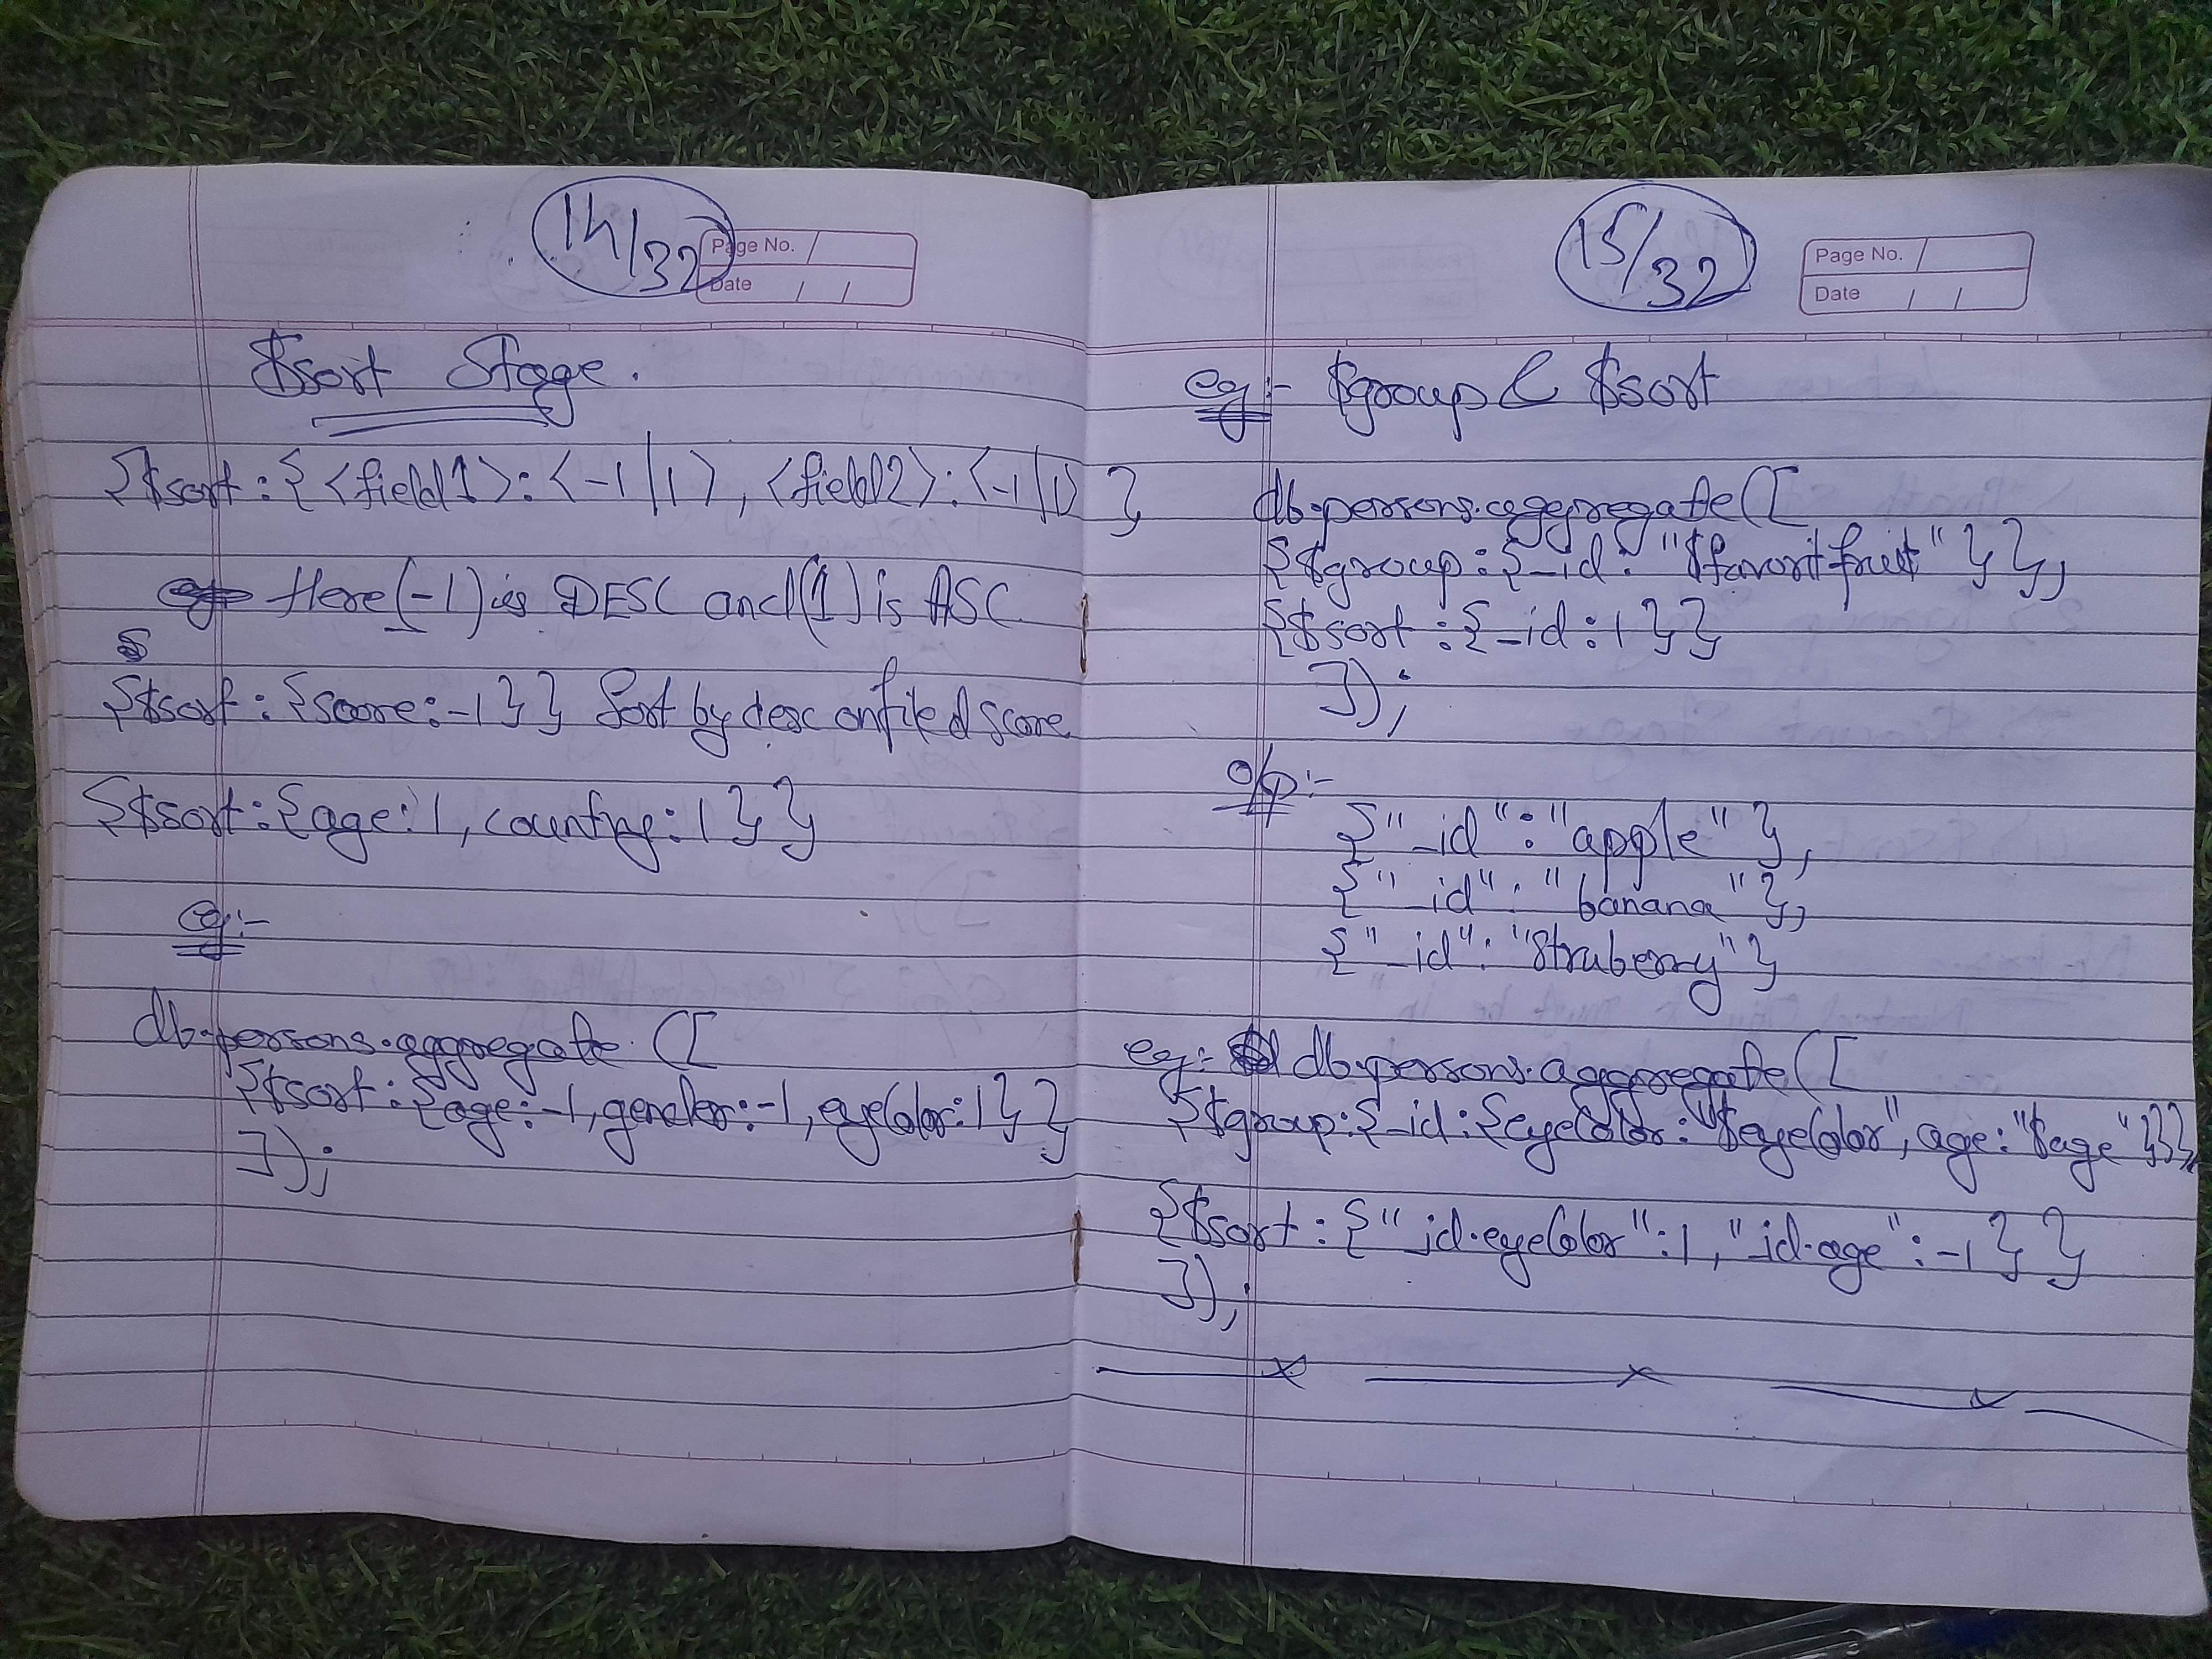 14/32
Page No.
Date / /
$sort Stage.
{$sort : { <field1>: <-1|1>, <field2>: <-1|1> }
Here (-1) is DESC and (1) is ASC
{$sort : {score: -1}} Sort by desc on field score
{$sort : {age: 1, country: 1}}
eg:-
db.persons.aggregate. ([
{$sort : {age: -1, gender: -1, eyeColor: 1}}
]);
15/32
Page No.
Date / /
eg:- $group & $sort
db.persons.aggregate([
{$group : {_id: "$favoritfruit"}},
{$sort : {_id : 1}}
]);
o/p:-
{"_id": "apple"},
{"_id": "banana"},
{"_id": "Strubeary"}
eg:- db.persons.aggregate([
{$group: {_id: {eyeColor: "$eyeColor", age: "$age"}}},
{$sort : {"_id.eyeColor": 1, "_id.age": -1}}
]);